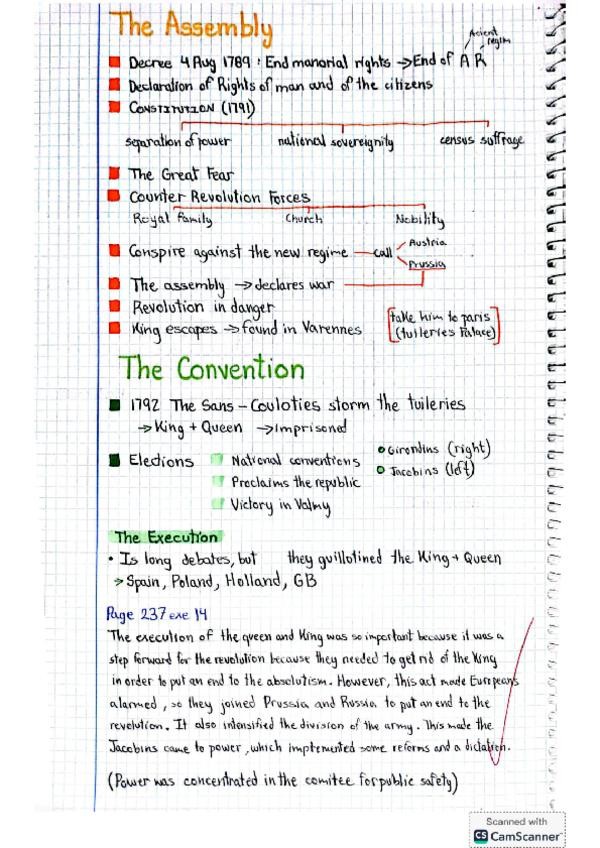 The Assembly
Ancient regim
Decree 4 Aug 1789 : End manorial rights → End of A R
Declaration of Rights of man and of the citizens
CONSTITUTION (1791)
separation of power national sovereignity census suffrage
The Great Fear
Counter Revolution Forces
Royal family Church Nobility
Conspire against the new regime — call Austria
Prussia
The assembly → declares war
Revolution in danger
King escapes → found in Varennes
[take him to paris
(tuileries Palace)]
The Convention
1792 The Sans - Couloties storm the tuileries
→ King + Queen → Imprisoned
Elections National conventions
Proclaims the republic
Victory in Valmy
Girondins (right)
Jacobins (left)
The Execution
• Is long debates, but they guillotined the King + Queen
→ Spain, Poland, Holland, GB
Page 237 exe 14
The execution of the queen and King was so important because it was a
step forward for the revolution because they needed to get rid of the King
in order to put an end to the absolutism. However, this act made Europeans
alarmed, so they joined Prussia and Russia to put an end to the
revolution. It also intensified the division of the army. This made the
Jacobins came to power, which implemented some reforms and a dictatori.
(Power was concentrated in the comitee for public safety)
Scanned with
CS CamScanner